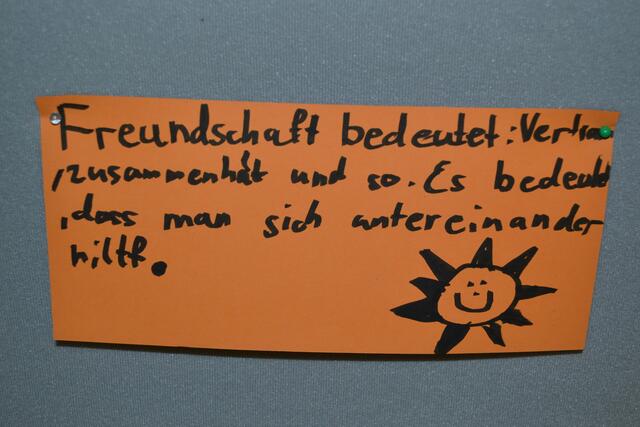 Freundschaft bedeutet: Vertrau
, zusammenhält und so. Es bedeutet
, dass man sich untereinander
hilft.